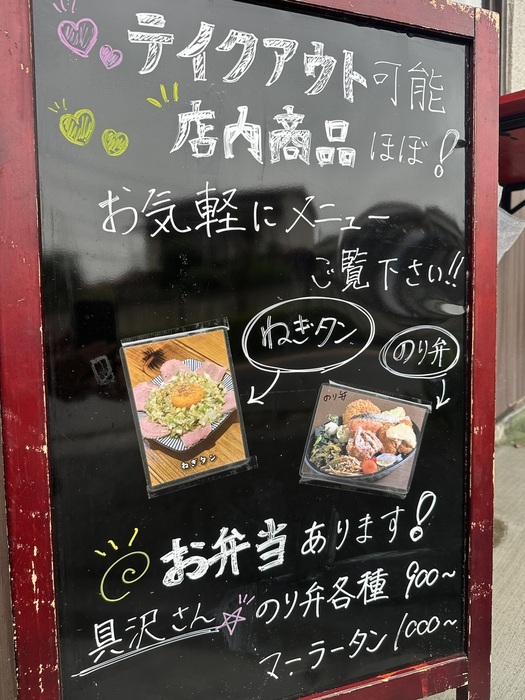 テイクアウト可能
店内商品ほぼ!
お気軽にメニュー
ご覧下さい!!
ねぎタン
のり弁
のり弁
ねぎタン
お弁当あります!
具沢さん☆のり弁各種 900~
マーラータン 1000~